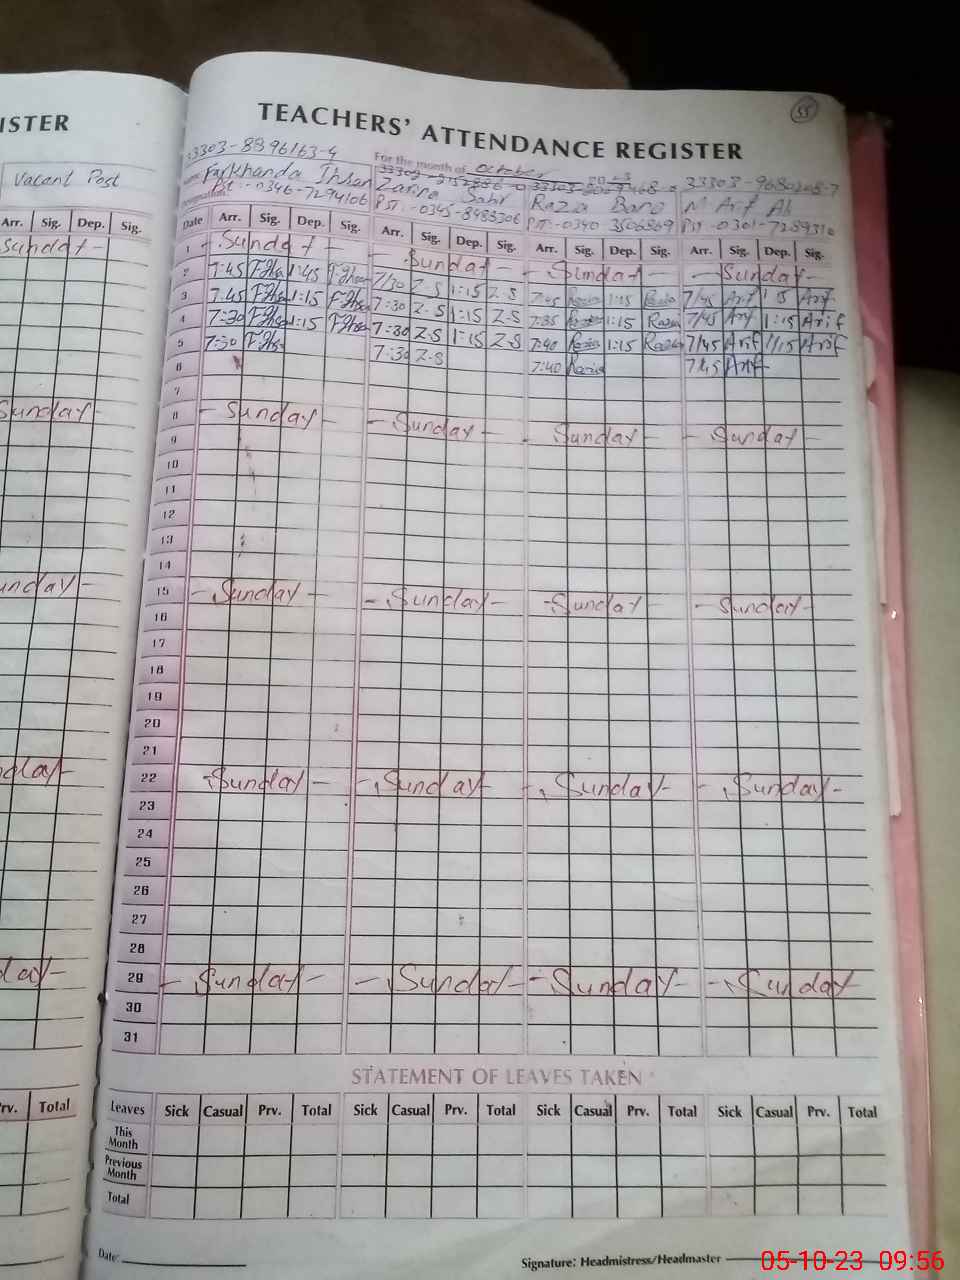 ISTER
Vacant Post
Arr. Sig. Dep. Sig.
Sunday -
Sunday -
Sunday -
Sunday -
Sunday -
Prv. Total
55
TEACHERS' ATTENDANCE REGISTER
33303-8896163-4
For the month of October
Farkhanda Ihsan
Pst:-0346-7294106
Zarina
PST:-0345-8485306
Raza Bano
PST:-0340
33303-9680208-7
M Arif Ali
Date Arr. Sig. Dep. Sig. Arr. Sig. Dep. Sig. Arr. Sig. Dep. Sig. Arr. Sig. Dep. Sig.
1 - Sunday - - Sunday - - Sunday - - Sunday -
2 7:45 1:45 7:30 Z.S 1:15 Z.S 7:45 Razia 1:15 Razia 7/45 Arif 1 15 Arif
3 7:45 1:15 7:30 Z.S 1:15 Z.S 7:35 1:15 Razia 7/45 Arif 1:15 Arif
4 7:30 1:15 7:30 Z.S 1:15 Z.S 7:40 Razia 1:15 Razia 7/45 Arif 1/15 Arif
5 7:30 7:30 Z.S 7:40 Razia 7:45 Arif
6
7
8 - Sunday - - Sunday - - Sunday - - Sunday -
9
10
11
12
13
14
15 - Sunday - - Sunday - - Sunday - - Sunday -
16
17
18
19
20
21
22 - Sunday - - Sunday - - Sunday - - Sunday -
23
24
25
26
27
28
29 - Sunday - - Sunday - - Sunday - - Sunday -
30
31
STATEMENT OF LEAVES TAKEN
Leaves Sick Casual Prv. Total Sick Casual Prv. Total Sick Casual Prv. Total Sick Casual Prv. Total
This
Month
Previous
Month
Total
Date:
Signature: Headmistress/Headmaster
05-10-23 09:56